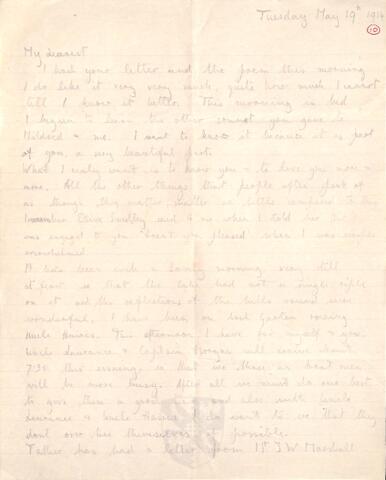 Tuesday May 19th 1914
10
My dearest
I had your letter and the poem this morning
I do like it very very much, quite how much I cannot
tell I know it better. This morning in bed
I began to learn the other sonnet you gave to
Mildred & me. I want to know it because it is part
of you, a very beautiful part.
What I really want is to know you & to love you more &
more. All the other things that people often speak of
as though they matter matter so little compared to this
I remember Olive said to me when I told her that I
was engaged to you "aren't you pleased" when I was
overwhelmed.
It has been such a lovely morning, very still
at first so that the lake had not a single ripple
on it and the reflections of the hills round were
wonderful. I have been on
Uncle . This afternoon I have for myself &
Uncle Laurance & Captain Morgan will arrive about
7:30 this evening, so that we three as boat men
will be more busy. After all we must do our best
to give them a good time and also with Uncle
Laurance & Uncle I do want to see that they
don't over tire themselves if possible.
Father has had a letter from Mr J W Marshall